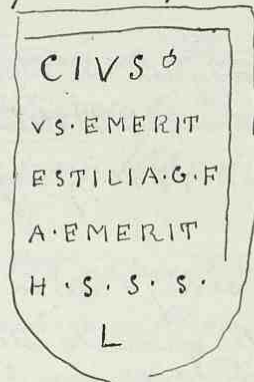 CIVS
VS·EMERIT
ESTILIA·G·F
A·EMERIT
H·S·S·S·
L